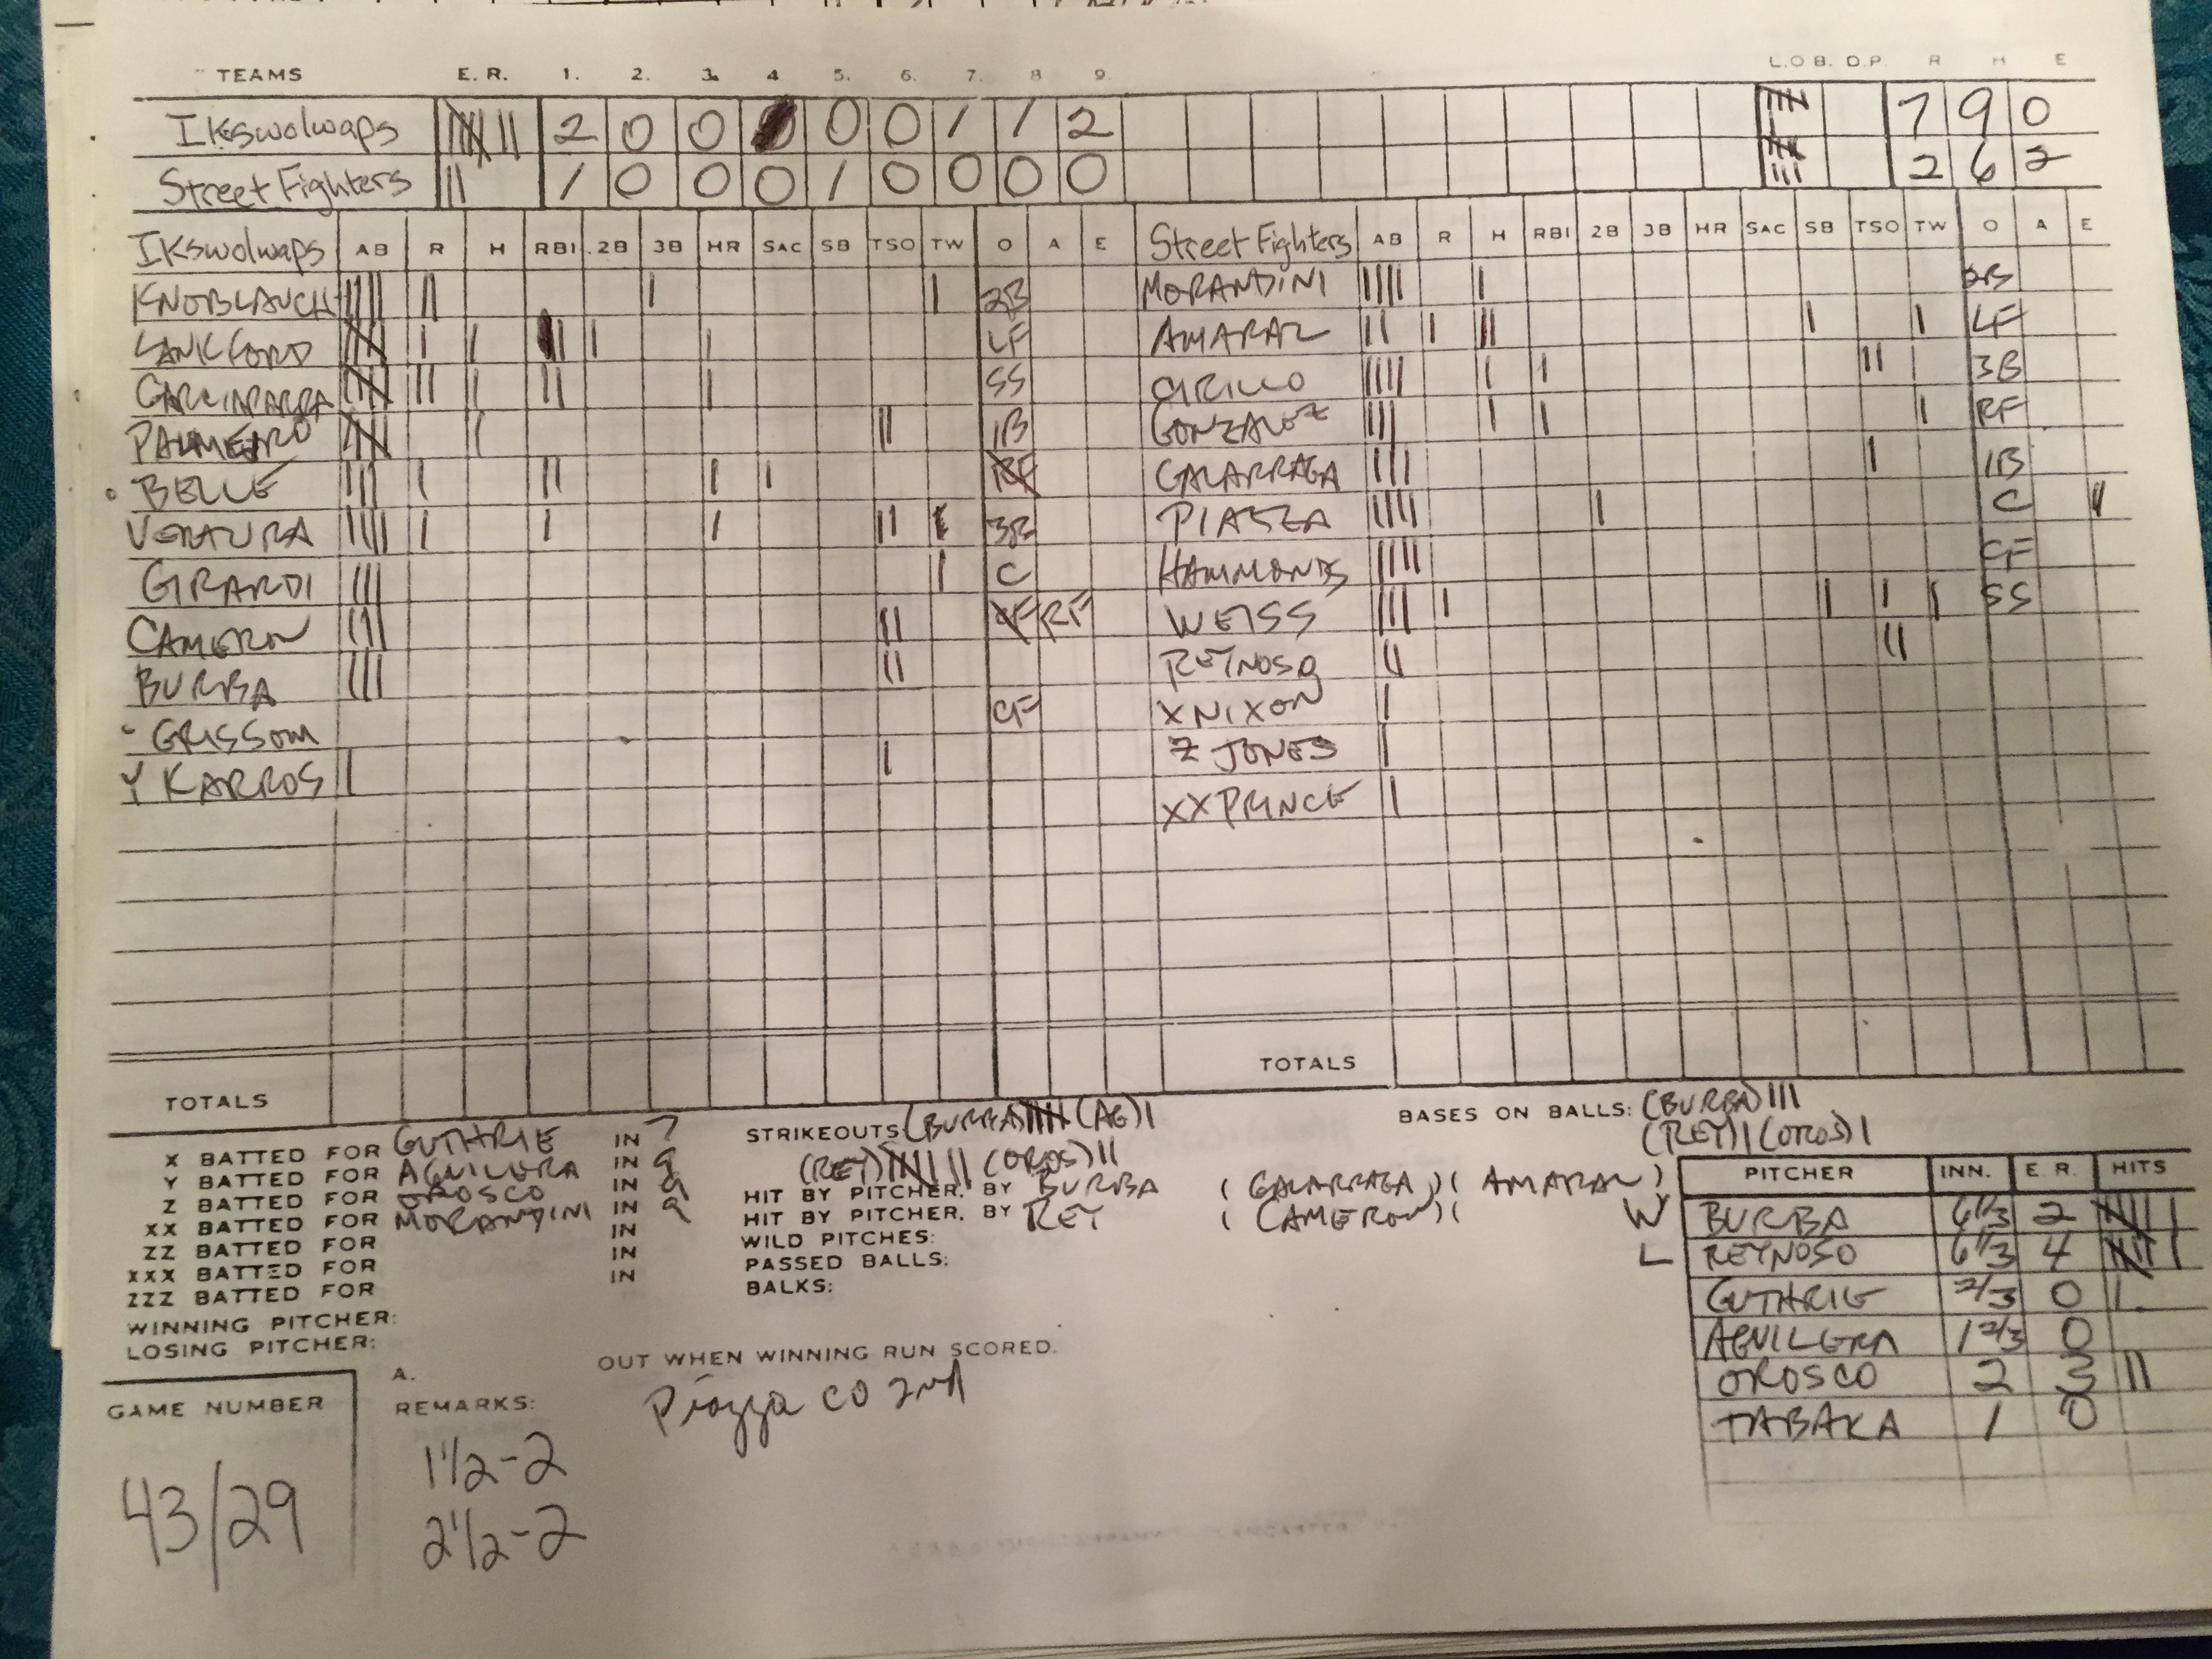 TEAMS E. R. 1. 2. 3. 4 5. 6. 7. 8 9. L.O B. D.P. R H E
IKSwolwaps 2 0 0 0 0 1 1 2 7 9 0
Street Fighters 1 0 0 0 1 0 0 0 0 2 6 2
IKSwolwaps AB R H RBI 2B 3B HR SAC SB TSO TW O A E Street Fighters AB R H RBI 2B 3B HR SAC SB TSO TW O A E
KNOBLAUCH 2B MORANDINI 2B
LANKFORD LF AMARAL LF
GARCIAPARRA SS CIRILLO 3B
PALMEIRO 1B GONZALEZ RF
BELLE RF GALARRAGA 1B
VENTURA 3B PIAZZA C
GIRARDI C HAMMONDS CF
CAMERON CF RF WEISS SS
BURBA REYNOSO
GRISSOM CF X NIXON
Y KARROS Z JONES
XX PRINCE
TOTALS TOTALS
X BATTED FOR GUTHRIE IN 7
Y BATTED FOR AGUILERA IN 9
Z BATTED FOR OROSCO IN 9
XX BATTED FOR MORANDINI IN 9
ZZ BATTED FOR IN
XXX BATTED FOR IN
ZZZ BATTED FOR IN
WINNING PITCHER:
LOSING PITCHER:
STRIKEOUTS (BURBA) (AG)
(REY) (OROS)
HIT BY PITCHER, BY BURBA (GALARRAGA)(AMARAL)
HIT BY PITCHER, BY REY (CAMERON)(
WILD PITCHES:
PASSED BALLS:
BALKS:
BASES ON BALLS: (BURBA)
(REY) (OROS)
PITCHER INN. E.R. HITS
W BURBA 6 1/3 2
L REYNOSO 6 1/3 4
GUTHRIE 2/3 0
AGUILERA 1 2/3 0
OROSCO 2 3
TABAKA 1 0
OUT WHEN WINNING RUN SCORED.
Piazza CO 2nd
GAME NUMBER
43/29
A.
REMARKS:
1 1/2-2
2 1/2-2